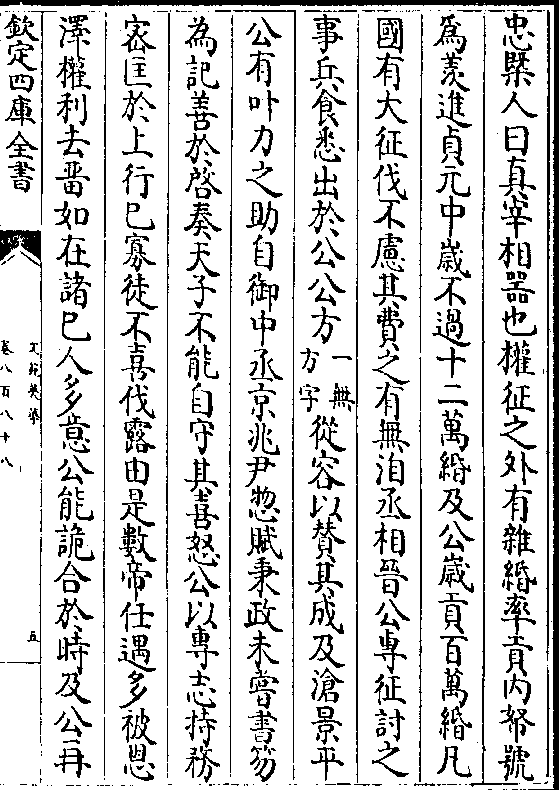 忠槩人曰真宰相器也權征之外有雜緡率貢内帑號
爲羡進貞元中嵗不過十二萬緡及公嵗貢百萬緡凡
國有大征伐不慮其費之有無洎丞相晉公專征討之
事兵食悉出於公公方一無方字從容以賛其成及滄景平
公有叶力之助自御中丞京兆尹惣賦秉政未嘗書笏
為記善於啓奏天子不能自守其喜怒公以專志持務
宻匡於上行已寡徒不喜伐露由是數帝任遇多被恩
澤權利去畱如在諸已人多意公能詭合於時及公再
欽定四庫全書
文苑英華
卷八百八十八
五